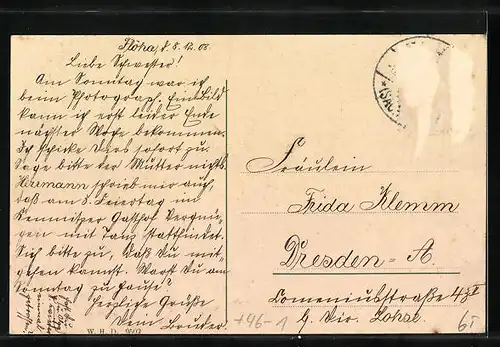 Flöha, d. 8. 12. 08
Liebe Schwester!
Am Sonntag war ich
beim Photograph. Ein Bild
kann ich erst leider Ende
nächster Woche bekommen.
Ich schicke Dirs sofort zu.
Sage bitte der Mutter nichts.
Hermann schrieb mir auch,
daß am 3. Feiertag im
Kemnitzer Gasthof Vergnü-
gen mit Tanz stattfindet.
Sich bitte zu, daß Du mit-
gehen kannst. Warst Du am
Sonntag zu Hause?
Herzliche Grüße
Dein Bruder.
W. H. D.
Fräulein
Frida Klemm
Dresden-A.
Comeniusstraße
b. Lohse
+46-1